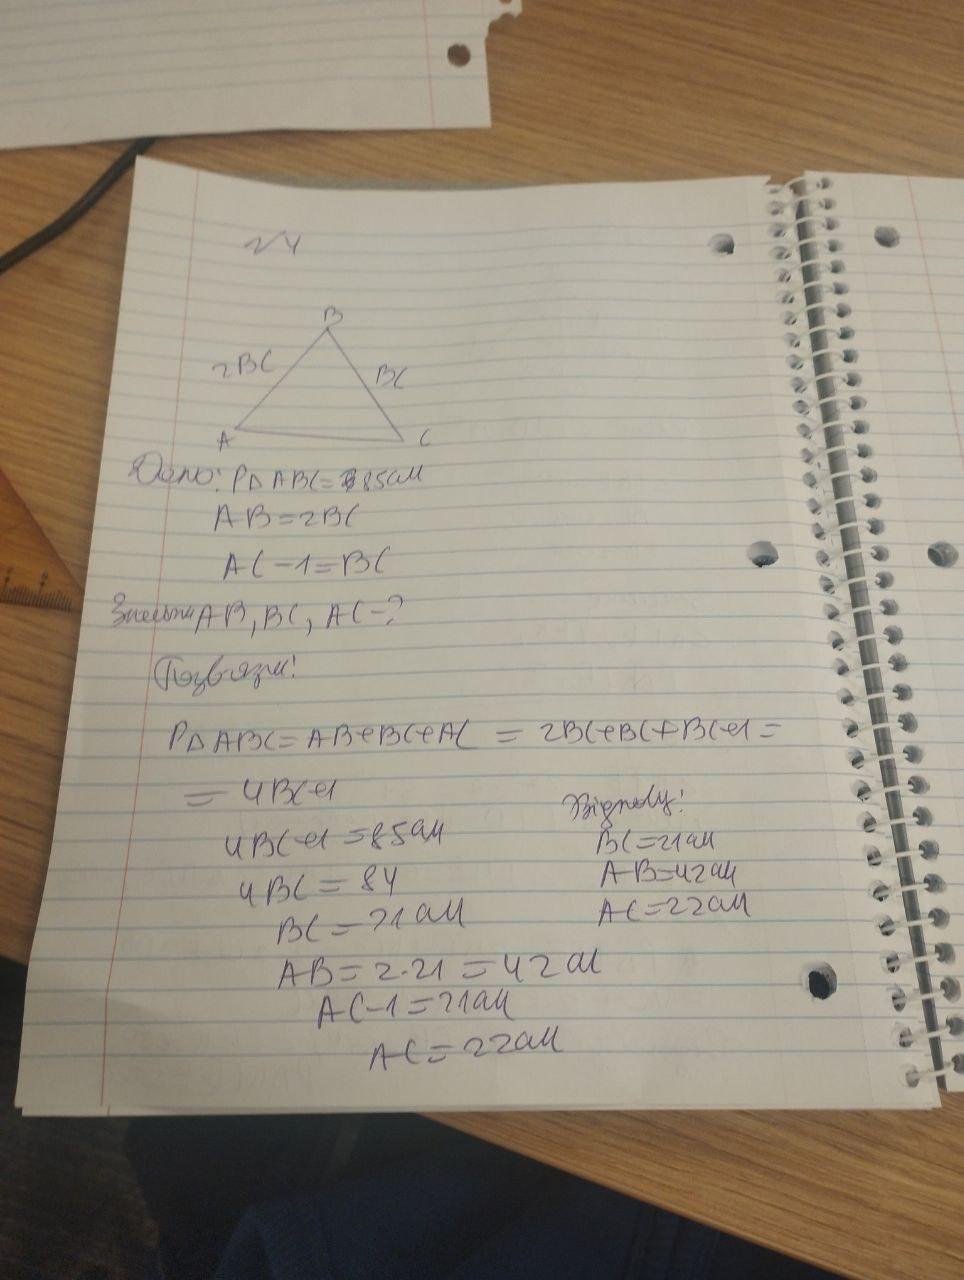 №4
B
2BC
BC
A
C
Дано: P△ABC=85см
AB=2BC
AC-1=BC
Знайти AB, BC, AC-?
Розв'язання:
P△ABC=AB+BC+AC = 2BC+BC+BC+1=
= 4BC+1
4BC+1=85см
4BC=84
BC=21см
AB=2·21=42см
AC-1=21см
AC=22см
Відповідь:
BC=21см
AB=42см
AC=22см